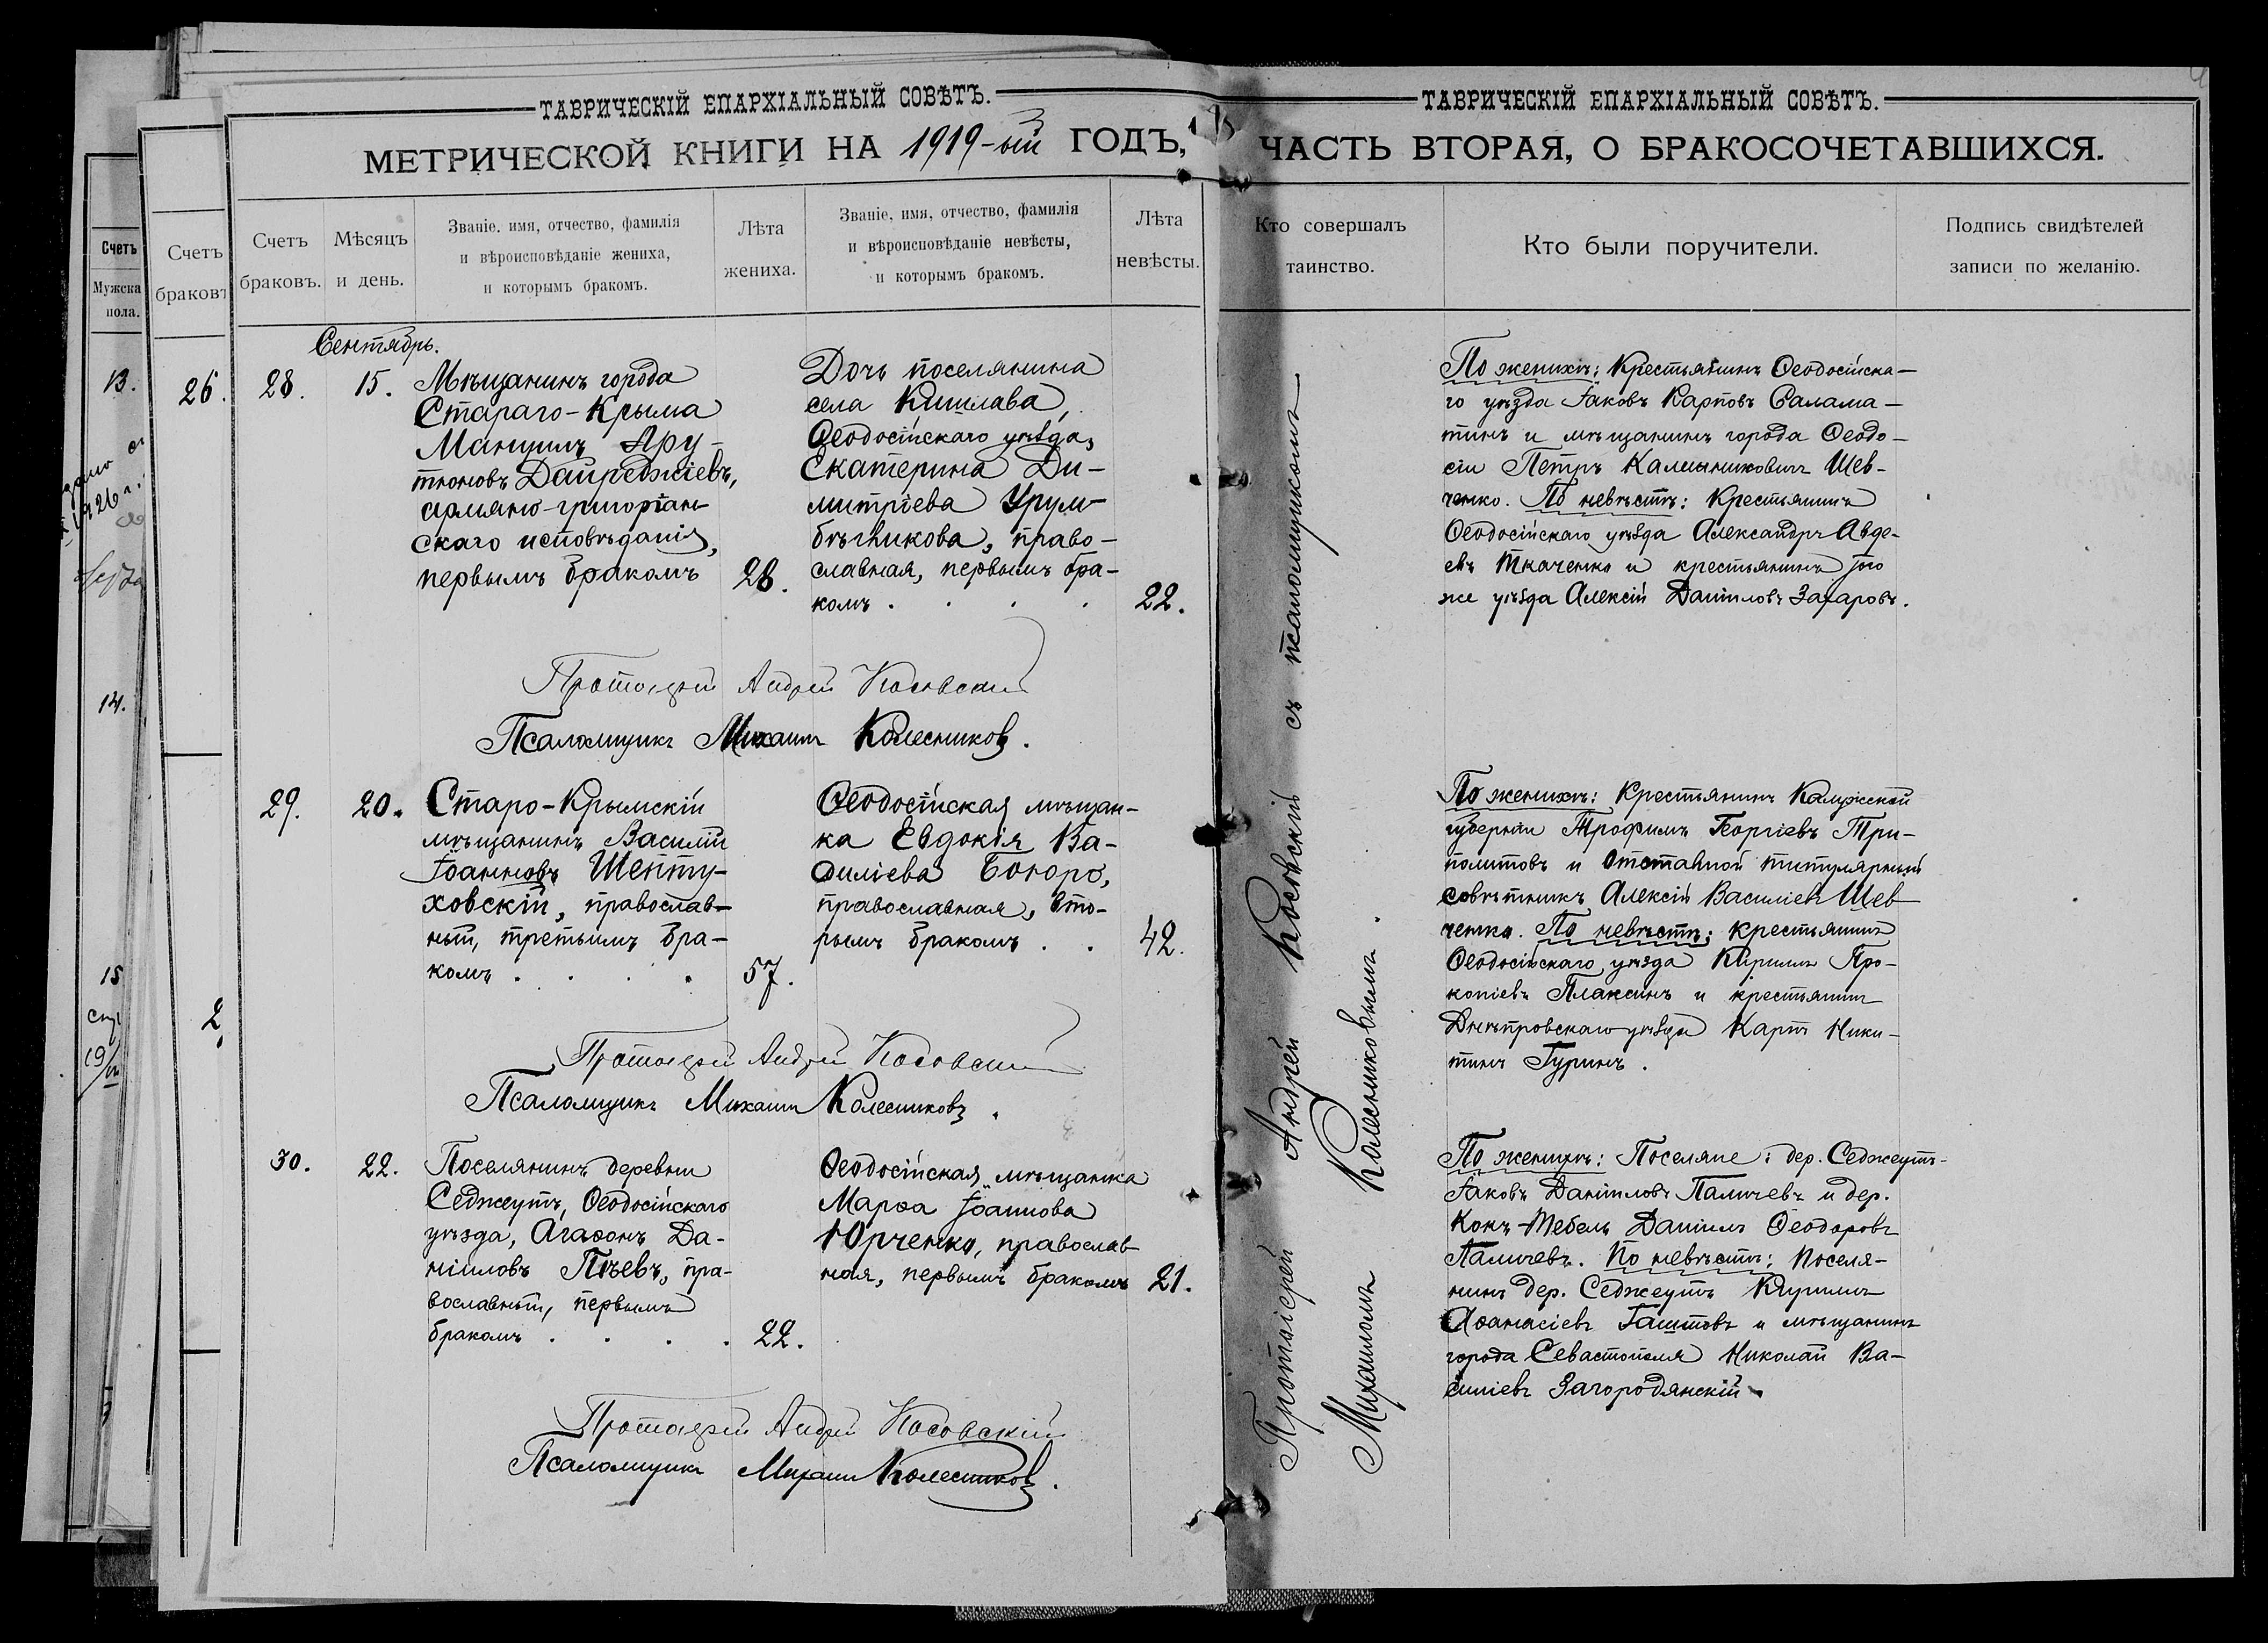 ТАВРИЧЕСКІЙ ЕПАРХІАЛЬНЫЙ СОВѢТЪ.
МЕТРИЧЕСКОЙ КНИГИ НА 1919-ый ГОДЪ,
Счетъ браковъ.
Мѣсяцъ и день.
Званіе, имя, отчество, фамилія
и вѣроисповѣданіе жениха,
и которымъ бракомъ.
Лѣта жениха.
Званіе, имя, отчество, фамилія
и вѣроисповѣданіе невѣсты,
и которымъ бракомъ.
Лѣта невѣсты.
Счетъ
Мужска
пола.
13.
14.
15
Счетъ
браковъ
26.
Сентябрь.
28.
15.
Мѣщанинъ города
Стараго-Крыма
Манушъ Ару-
тюновъ Дайреджіевъ,
армяно-григоріан-
скаго исповѣданія,
первымъ бракомъ
28.
Дочь поселянина
села Кишлава,
Ѳеодосійскаго уѣзда,
Екатерина Ди-
митріева Урум-
бѣгликова, право-
славная, первымъ бра-
комъ . . . .
22.
Протоіерей Андрей Косовскій
Псаломщикъ Михаилъ Колесниковъ.
29.
20.
Старо-Крымскій
мѣщанинъ Василій
Іоанновъ Шепту-
ховскій, православ-
ный, третьимъ бра-
комъ . . . .
57.
Ѳеодосійская мѣщан-
ка Евдокія Ва-
силіева Бокоро,
православная, вто-
рымъ бракомъ . .
42.
Протоіерей Андрей Косовскій
Псаломщикъ Михаилъ Колесниковъ.
30.
22.
Поселянинъ деревни
Седжеутъ, Ѳеодосійскаго
уѣзда, Агаѳонъ Да-
ніиловъ Пѣевъ, пра-
вославный, первымъ
бракомъ . . . .
22.
Ѳеодосійская мѣщанка
Марѳа Іоаннова
Юрченко, православ-
ная, первымъ бракомъ
21.
Протоіерей Андрей Косовскій
Псаломщикъ Михаилъ Колесниковъ.
ТАВРИЧЕСКІЙ ЕПАРХІАЛЬНЫЙ СОВѢТЪ.
ЧАСТЬ ВТОРАЯ, О БРАКОСОЧЕТАВШИХСЯ.
Кто совершалъ
таинство.
Кто были поручители.
Подпись свидѣтелей
записи по желанію.
Протоіерей Андрей Косовскій съ псаломщикомъ
Михаиломъ Колесниковымъ.
По женихѣ: Крестьянинъ Ѳеодосійска-
го уѣзда Іаковъ Карповъ Салама-
тинъ и мѣщанинъ города Ѳеодо-
сіи Петръ Калинниковичъ Шев-
ченко. По невѣстѣ: Крестьянинъ
Ѳеодосійскаго уѣзда Александръ Авде-
евъ Ткаченко и крестьянинъ того
же уѣзда Алексій Даніиловъ Захаровъ.
По женихѣ: Крестьянинъ Калужской
губерніи Трофимъ Георгіевъ Три-
политовъ и отставной титулярный
совѣтникъ Алексій Василіевъ Шев-
ченко. По невѣстѣ: крестьянинъ
Ѳеодосійскаго уѣзда Кириллъ Про-
копіевъ Плаксинъ и крестьянинъ
Днѣпровскаго уѣзда Карпъ Ники-
тинъ Гуринъ.
По женихѣ: Поселяне: дер. Седжеутъ-
Іаковъ Даніиловъ Паличевъ и дер.
Кокъ-Тебель Даніилъ Ѳеодоровъ
Паличевъ. По невѣстѣ: Поселя-
нинъ дер. Седжеутъ Кириллъ
Аѳанасіевъ Гаштовъ и мѣщанинъ
города Севастополя Николай Ва-
силіевъ Загородянскій